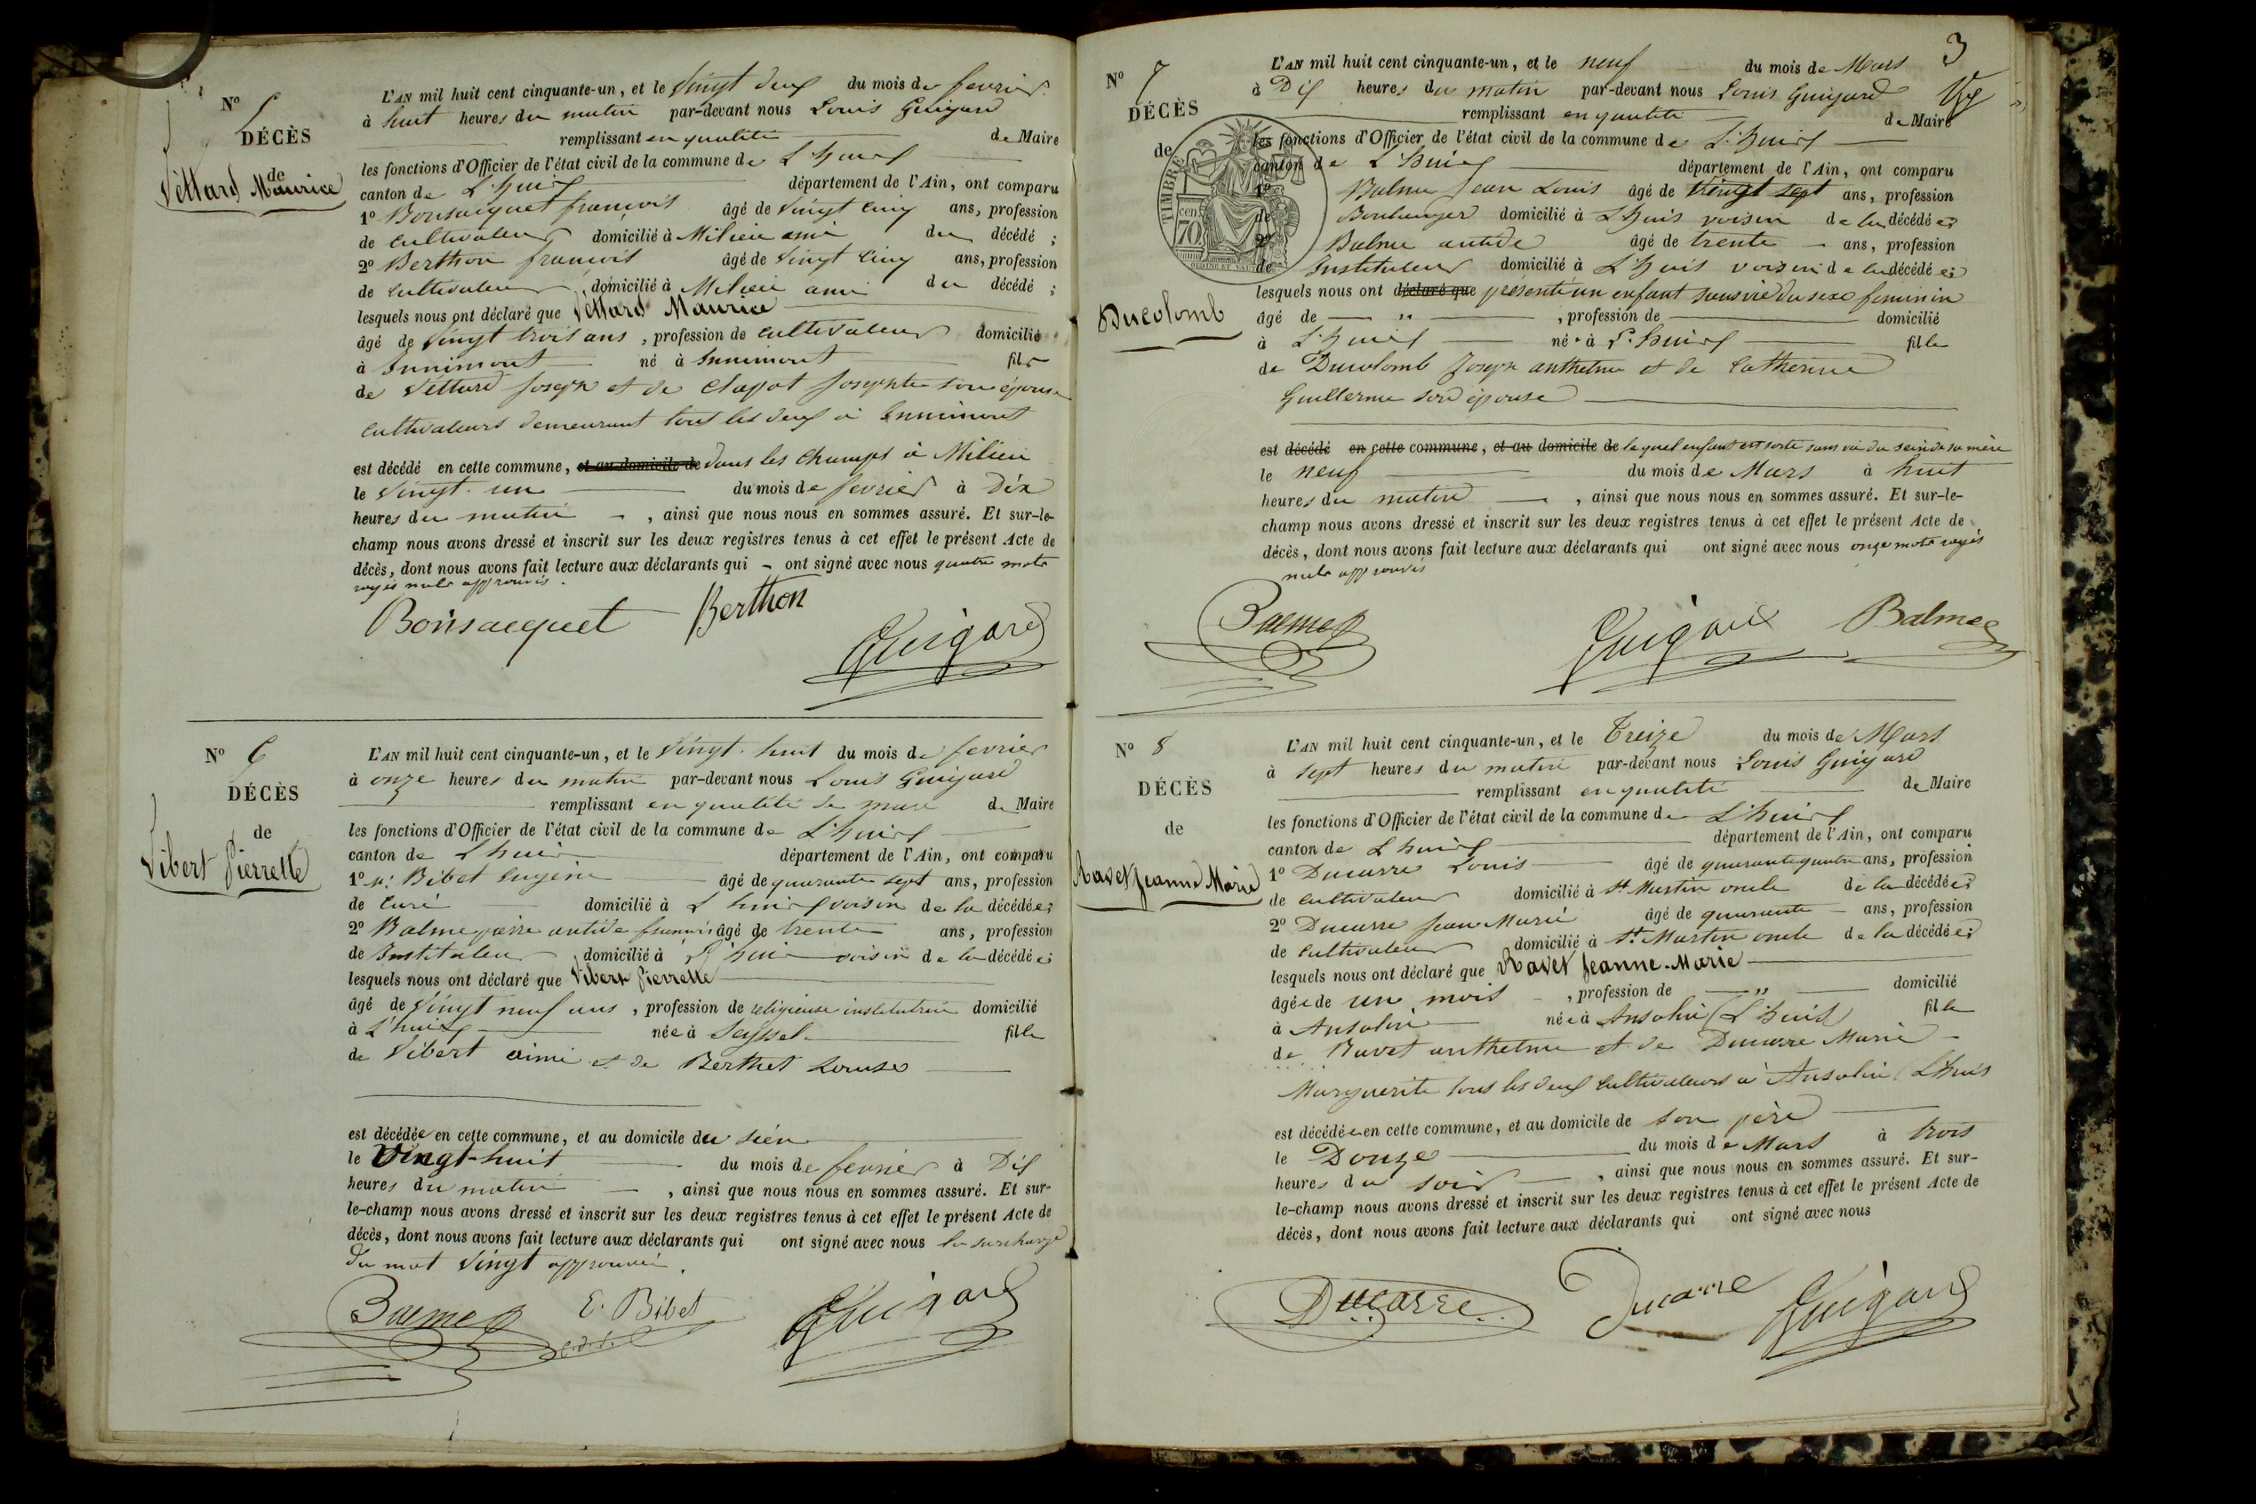 N° 5
DÉCÈS
de
Vettard Maurice
L'AN mil huit cent cinquante-un, et le vingt deux du mois de fevrier
à huit heures du matin par-devant nous Louis Guigard
remplissant en qualité de Maire
les fonctions d'Officier de l'état civil de la commune de L'huis
canton de L'huis département de l'Ain, ont comparu
1° Bonsacquet françois âgé de vingt cinq ans, profession
de cultivateur domicilié à Milieu ami du décédé ;
2° Berthon françois âgé de vingt cinq ans, profession
de cultivateur domicilié à Milieu ami du décédé ;
lesquels nous ont déclaré que Vettard Maurice
âgé de vingt trois ans, profession de cultivateur domicilié
à Innimont né à Innimont fils
de Vettard Joseph et de Chapot Josephte son épouse
cultivateurs demeurant tous les deux à Innimont
est décédé en cette commune, et au domicile de dans les champs à Milieu
le vingt-un du mois de fevrier à Dix
heures du matin, ainsi que nous nous en sommes assuré. Et sur-le-
champ nous avons dressé et inscrit sur les deux registres tenus à cet effet le présent Acte de
décès, dont nous avons fait lecture aux déclarants qui ont signé avec nous quatre mots
rayés nuls approuvés.
Bonsacquet Berthon
Guigard
N° 6
DÉCÈS
de
Vibert Pierrette
L'AN mil huit cent cinquante-un, et le vingt-huit du mois de fevrier
à onze heures du matin par-devant nous Louis Guigard
remplissant en qualité de maire de Maire
les fonctions d'Officier de l'état civil de la commune de L'huis
canton de Lhuis département de l'Ain, ont comparu
1° Mr Bibet Eugène âgé de quarante sept ans, profession
de curé domicilié à L'huis voisin de la décédée ;
2° Balme pierre antide françois âgé de trente ans, profession
de Instituteur domicilié à L'huis voisin de la décédée ;
lesquels nous ont déclaré que Vibert Pierrette
âgé de vingt neuf ans, profession de religieuse institutrice domicilié
à L'huis née à Seyssel fille
de Vibert aimé et de Berthet Louise
est décédée en cette commune, et au domicile du sien
le Vingt-huit du mois de fevrier à Dix
heures du matin, ainsi que nous nous en sommes assuré. Et sur-
le-champ nous avons dressé et inscrit sur les deux registres tenus à cet effet le présent Acte de
décès, dont nous avons fait lecture aux déclarants qui ont signé avec nous la surcharge
du mot vingt approuvée.
Balme E. Bibet Guigard
3
N° 7
DÉCÈS
de
Ducolomb
TIMBRE
70 cen
L'AN mil huit cent cinquante-un, et le neuf du mois de Mars
à Dix heures du matin par-devant nous Louis Guigard
remplissant en qualité de Maire
les fonctions d'Officier de l'état civil de la commune de L'huis
canton de L'huis département de l'Ain, ont comparu
1° Balme Jean Louis âgé de vingt sept ans, profession
de Boulanger domicilié à L'huis voisin de la décédée ;
2° Balme antide âgé de trente ans, profession
de Instituteur domicilié à L'huis voisin de la décédée ;
lesquels nous ont déclaré que présenté un enfant sans vie du sexe feminin
âgé de " , profession de domicilié
à L'huis né à L'huis fille
de Ducolomb Joseph anthelme et de Catherine
Guillerme son épouse
est décédé en cette commune, et au domicile de lequel enfant est sorti sans vie du sein de sa mère
le neuf du mois de Mars à huit
heures du matin, ainsi que nous nous en sommes assuré. Et sur-le-
champ nous avons dressé et inscrit sur les deux registres tenus à cet effet le présent Acte de
décès, dont nous avons fait lecture aux déclarants qui ont signé avec nous onze mots rayés
nuls approuvés
Balme Guigard Balme
N° 8
DÉCÈS
de
Ravet Jeanne Marie
L'AN mil huit cent cinquante-un, et le Treize du mois de Mars
à sept heures du matin par-devant nous Louis Guigard
remplissant en qualité de Maire
les fonctions d'Officier de l'état civil de la commune de L'huis
canton de L'huis département de l'Ain, ont comparu
1° Ducarre Louis âgé de quarante quatre ans, profession
de cultivateur domicilié à St Martin oncle de la décédée ;
2° Ducarre Jean Marie âgé de quarante ans, profession
de cultivateur domicilié à St Martin oncle de la décédée ;
lesquels nous ont déclaré que Ravet Jeanne-Marie
âgée de un mois , profession de " domicilié
à Ansolin née à Ansolin (L'huis) fille
de Ravet anthelme et de Ducarre Marie
Marguerite tous les deux cultivateurs à Ansolin (Lhuis
est décédée en cette commune, et au domicile de son père
le Douze du mois de Mars à trois
heures du soir, ainsi que nous nous en sommes assuré. Et sur-
le-champ nous avons dressé et inscrit sur les deux registres tenus à cet effet le présent Acte de
décès, dont nous avons fait lecture aux déclarants qui ont signé avec nous
Ducarre Ducarre Guigard